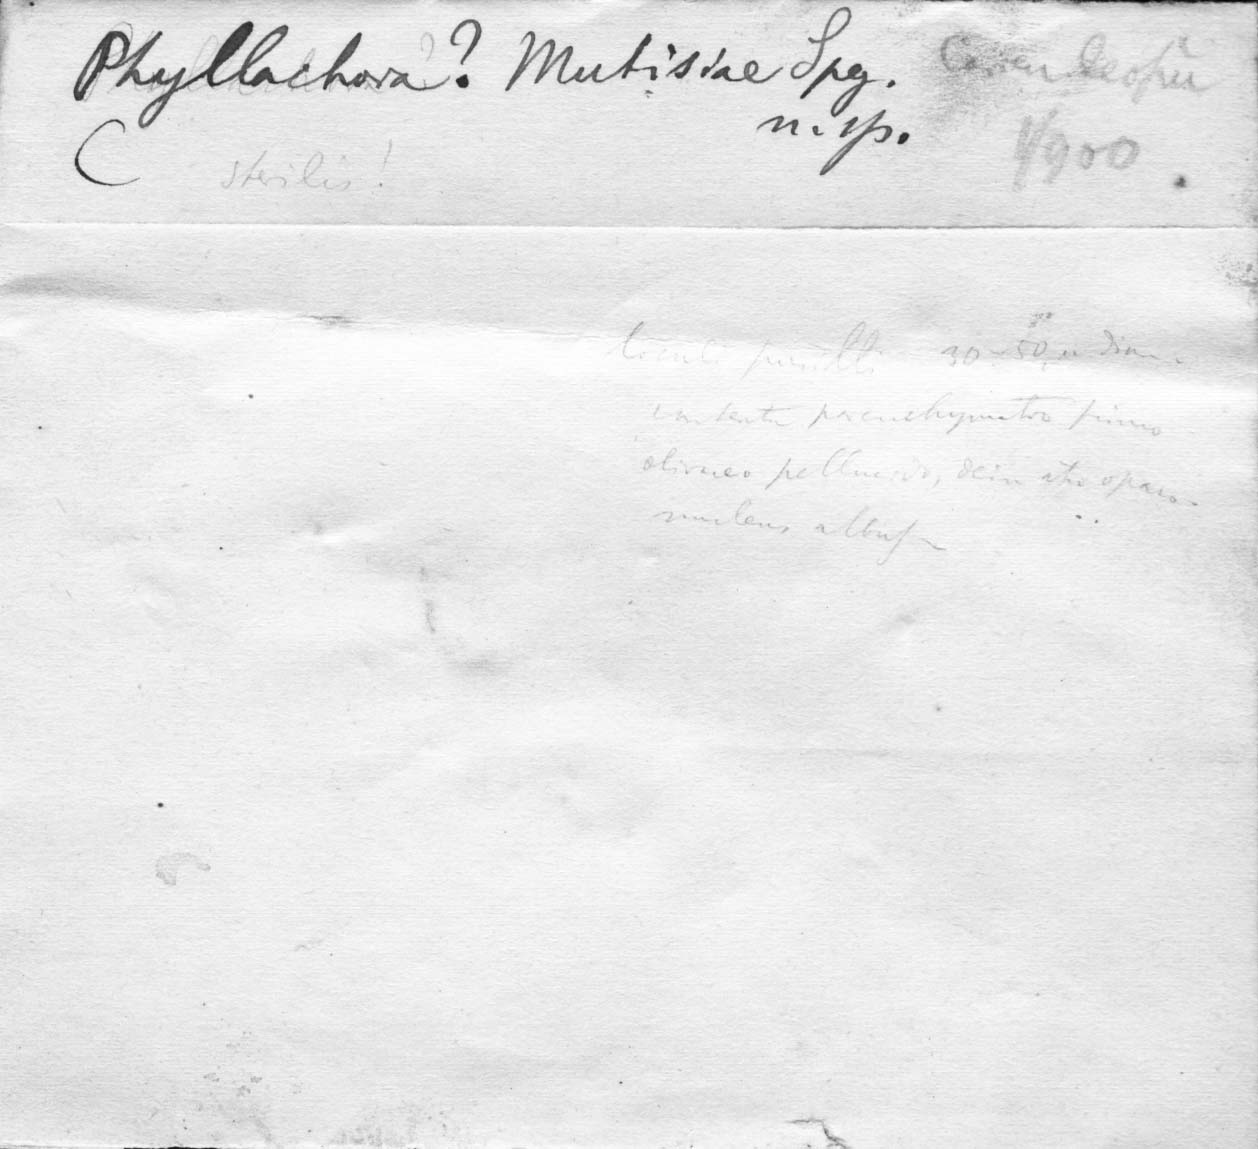 Phyllachora? Mutisiae Speg.
n. sp.
C
1/900
sterilis!
loculi pusilli 30-50 u diam.
parenchymatro primo
olivaceo pellucido, dein atro opaco.
nucleus albus